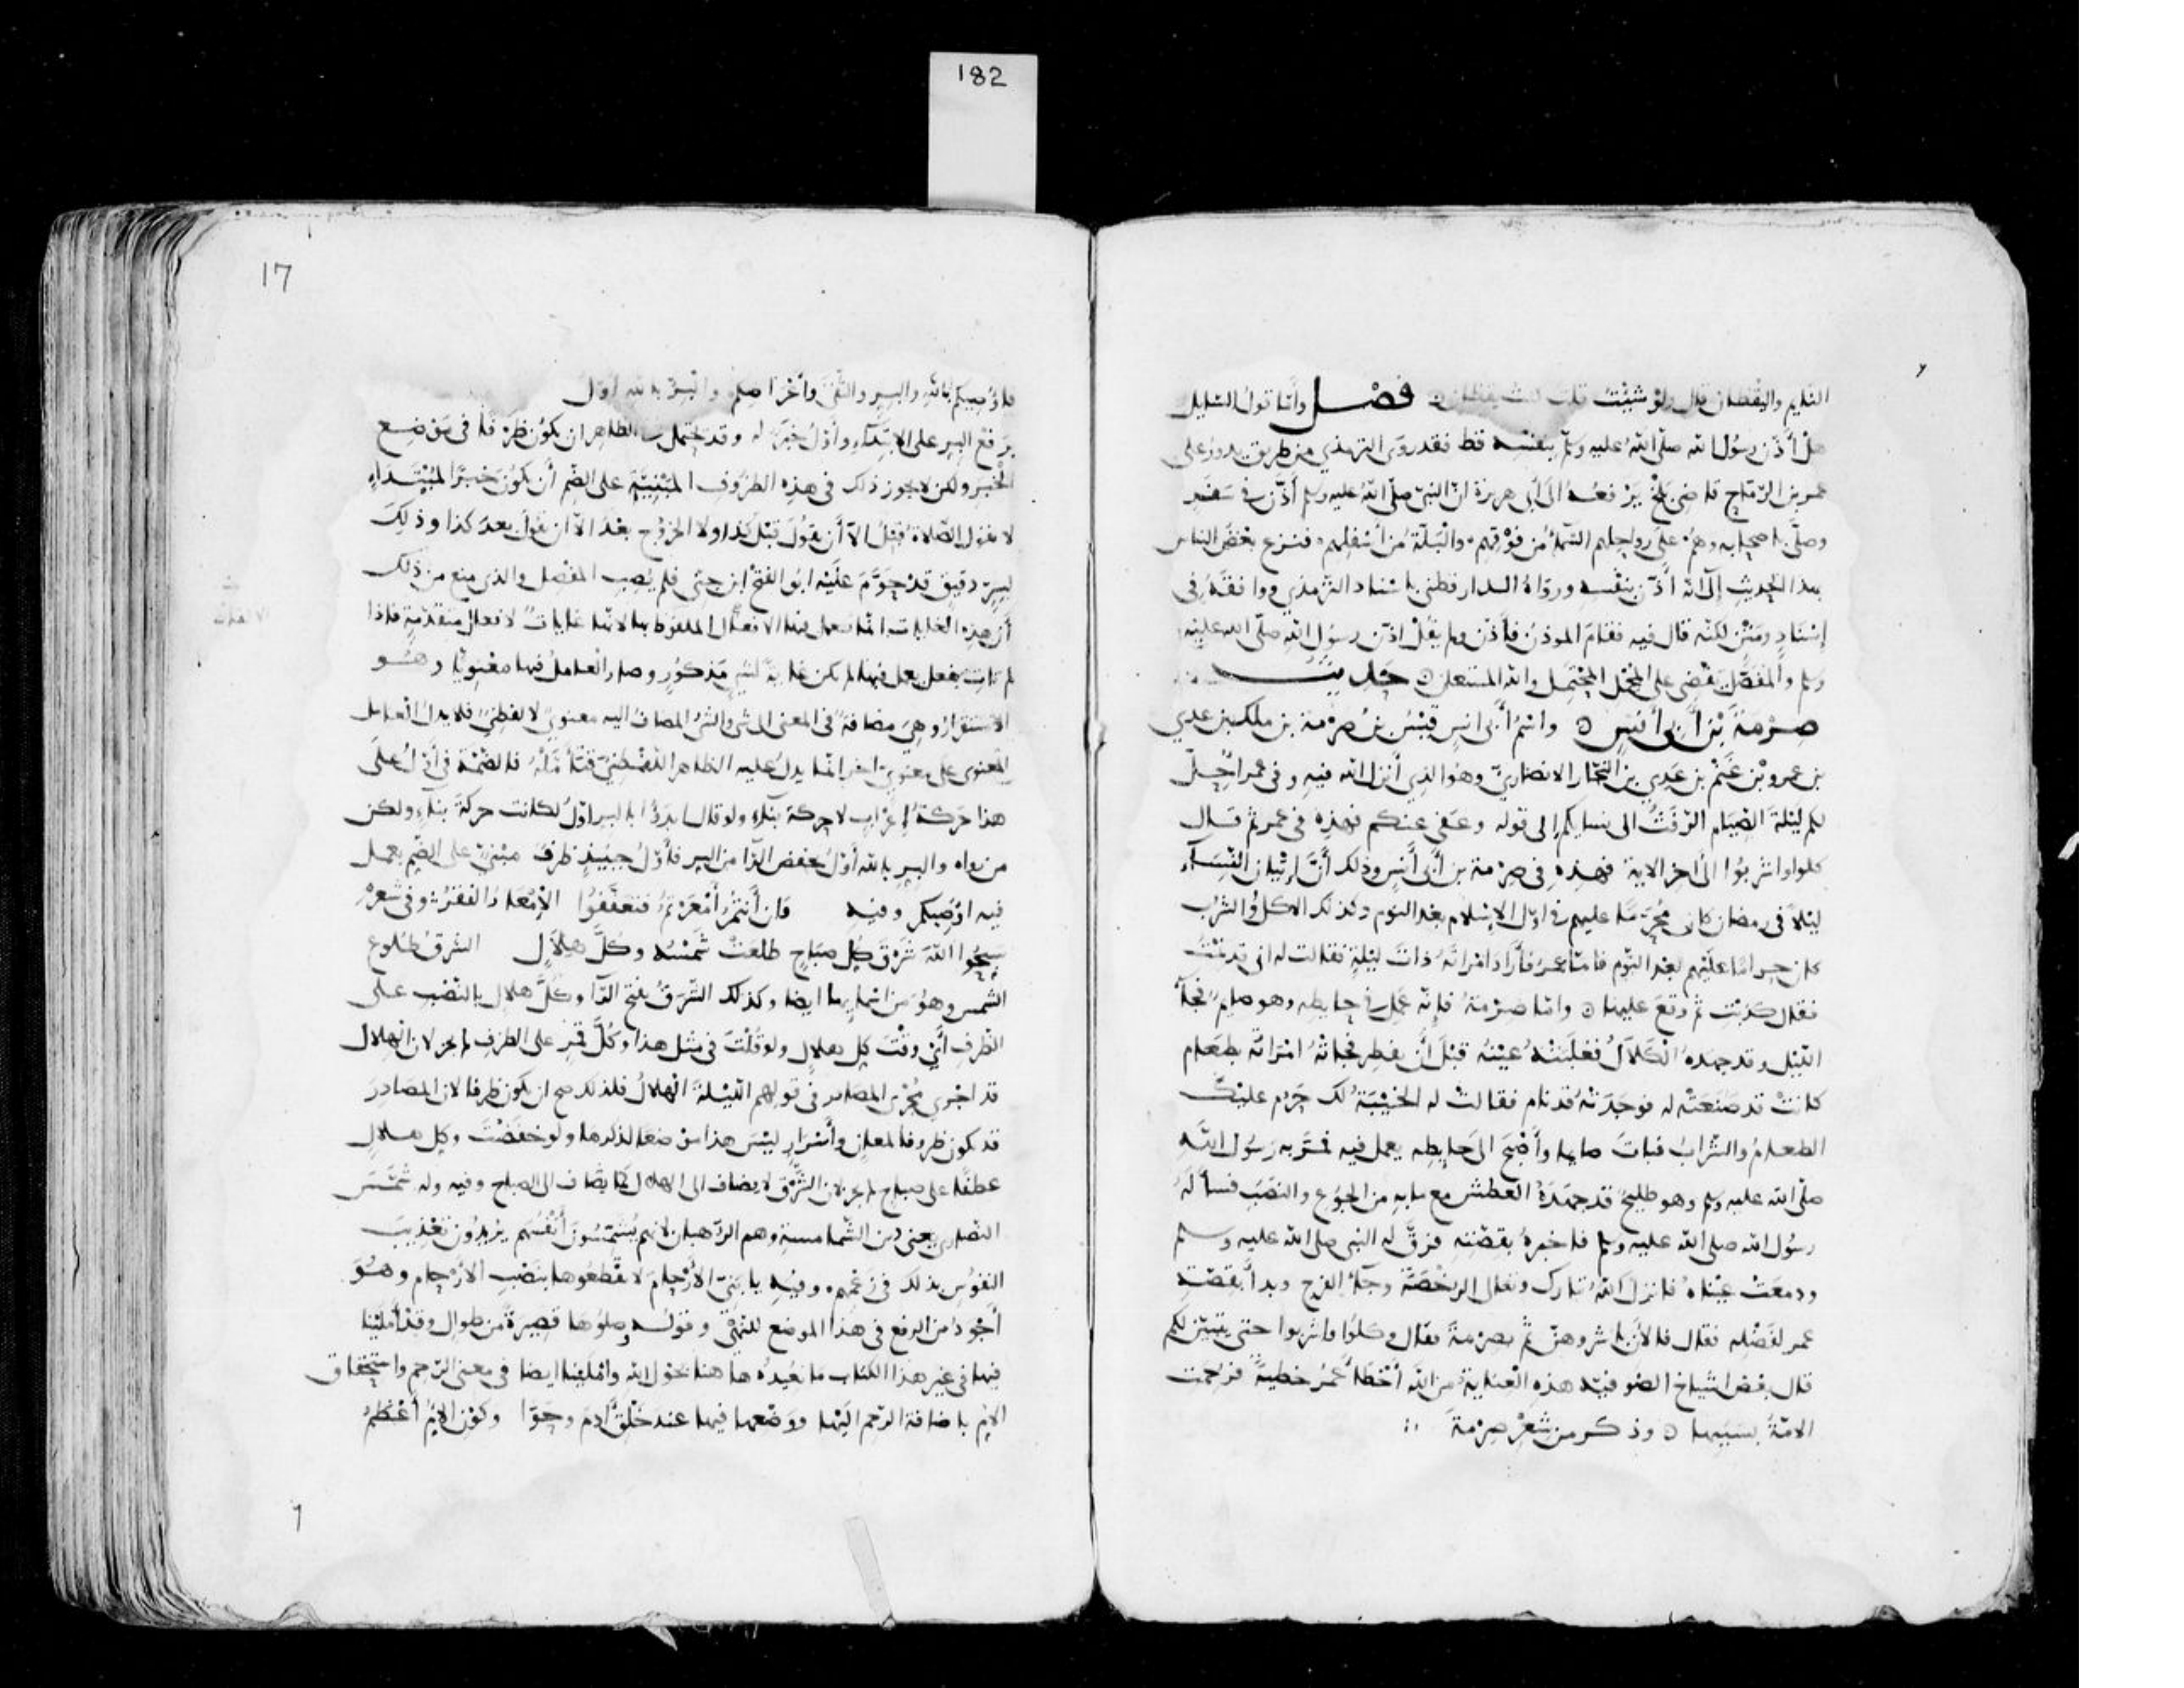 182
النائم واليقظان قال ولو شئت قلت لست يقظان ه فصل وأما قول السايل
هل أذن رسول الله صلى الله عليه وسلم بنفسه قط فقد روى الترمذي من طريق يدور على
عمر بن الرماح قاضي بلخ يرفعه الى أبي هريرة ان النبي صلى الله عليه وسلم أذن في سفر
وصلى باصحابه وهم على رواحلهم السماء من فوقهم والبلة من أسفلهم فنزع بعض الناس
بهذا الحديث إلى انه أذن بنفسه ورواه الدارقطني باسناد الترمذي ووافقه في
إسناد ومتن لكنه قال فيه فقام الموذن فأذن ولم يقل اذن رسول الله صلى الله عليه
وسلم والمفصل يقضي على المجمل المحتمل والله المستعان ه حديث
صرمة بن أبي أنس ه واسم أبي انس قيس بن صرمة بن ملك بن عدي
بن عمرو بن غنم بن عدي بن النجار الانصاري وهو الذي أنزل الله فيه وفي عمر أحل
لكم ليلة الصيام الرفث الى نسايكم إلى قوله وعفى عنكم فهذه في عمر ثم قال
كلوا واشربوا الى اخر الاية فهذه في صرمة بن أبي أنس وذلك أن إتيان النساء
ليلا في رمضان كان محرما عليهم في اول الإسلام بعد النوم وكذلك الاكل والشرب
كان حراما عليهم بعد النوم فاما عمر فأراد امرأته ذات ليلة فقالت له اني قد نمت
فقال كذبت ثم وقع عليها ه واما صرمة فإنه عمل في حايطه وهو صايم فجاء
الليل وقد جهده الكلال فغلبته عينه قبل أن يفطر فجاته امرأته بطعام
كانت قد صنعته له فوجدته قد نام فقالت له الخيبة لك حرم عليك
الطعام والشراب فبات صايما وأصبح الى حايطه يعمل فيه فمر به رسول الله
صلى الله عليه وسلم وهو طليح قد جهده العطش مع ما به من الجوع والنصب فسأله
رسول الله صلى الله عليه وسلم فاخبره بقصته فرق له النبي صلى الله عليه وسلم
ودمعت عيناه فانزل الله تبارك وتعالى الرخصة وجاء الفرج وبدأ بقصة
عمر لفضله فقال فالأن باشروهن ثم بصرمة فقال وكلوا واشربوا حتى يتبين لكم
قال بعض اشياخ الصوفية هذه العناية من الله أخطأ عمر خطية فرحمت
الامة بسببها ه وذكر من شعر صرمة
17
فاوصيكم بالله والبر والتقى وأعراضكم والبر بالله اول
برفع البر على الابتداء وأول خبر له وقد يحتمل الظاهر ان يكون ظرفا في موضع
الخبر ولكن لا يجوز ذلك في هذه الظروف المبنية على الضم أن يكون خبر المبتداء
لا تقول الصلاة قبل الا أن يقول قبل كذا ولا الخروج بعد الا ان تقول بعد كذا وذلك
لسر دقيق قد حوم عليه ابو الفتح ابن جني فلم يصب المفصل والذي منع من ذلك
أن هذه الغايات انما تعمل فيها الافعال الملفوظ بها لانها غايات لافعال متقدمة فاذا
لم تات بفعل يعمل فيها لم تكن غاية لشي مذكور وصار العامل فيها معنويا وهو
الاستقرار وهي مضافة في المعنى الى شي والشي المضاف اليه معنوي لا لفظي فلا يدل العامل
المعنوي على معنوي اخر انما يدل عليه الظاهر اللفظي فتأمله فالضمة في أول على
هذا حركة إعراب لا حركة بناء ولو قال ابدؤا بالبر اول لكانت حركة بناء ولكن
من رواه والبر بالله أول بخفض الرا من البر فأول حينئذ ظرف مبني على الضم يعمل
فيه اوصيكم وفيه فان أنتم أمعرتم فتعففوا الإمعار الفقر وفي شعره
سبحوا الله شرق كل صباح طلعت شمسه وكل هلال الشرق طلوع
الشمس وهو من اسمايها ايضا وكذلك الشرق بفتح الرا وكل هلال بالنصب على
الظرف أي وقت كل هلال ولو قلت في مثل هذا وكل قمر على الظرف لم يجز لان الهلال
قد اجري مجرى المصادر في قولهم الليلة الهلال فلذلك صح ان يكون ظرفا لان المصادر
قد تكون ظروفا لمعان وأسرار ليس هذا موضعا لذكرها ولو خفضت وكل هلال
عطفا على صباح لم يجز لان الشرق لا يضاف الى الهلال كما يضاف الى الصباح وفيه وله شمس
النصارى يعني دين الشمامسة وهم الرهبان لانهم يشمسون أنفسهم يريدون تعذيب
النفوس بذلك في زعمهم وفيه يا بني الأرحام لا تقطعوها بنصب الأرحام وهو
أجود من الرفع في هذا الموضع للنهي وقوله وصلوها قصيرة من طوال وقد أملينا
فيها في غير هذا الكتاب ما نعيده هاهنا بحول الله واملينا ايضا في معنى الرحم واشتقاق
الام باضافة الرحم اليها ووضعها فيها عند خلق ادم وحوا وكون الام أعظم